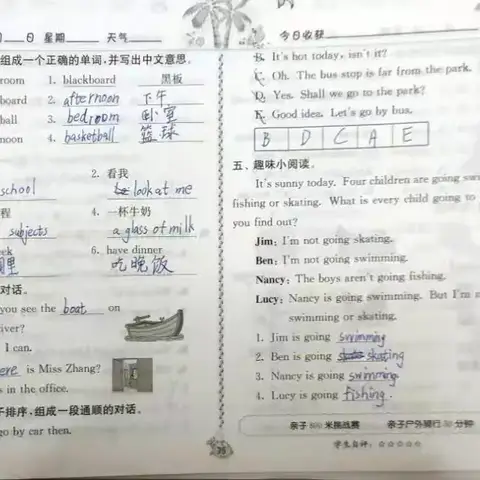 日 星期 天气
组成一个正确的单词,并写出中文意思。
room 1. blackboard 黑板
board 2. afternoon 下午
ball 3. bedroom 卧室
noon 4. basketball 篮球
2. 看我
school look at me
程 4. 一杯牛奶
subjects a glass of milk
eek 6. have dinner
吃晚饭
对话。
you see the boat on
iver?
I can.
ere is Miss Zhang?
s in the office.
子排序,组成一段通顺的对话。
go by car then.
今日收获
B. It's hot today, isn't it?
C. Oh. The bus stop is far from the park.
D. Yes. Shall we go to the park?
E. Good idea. Let's go by bus.
B D C A E
五、趣味小阅读。
It's sunny today. Four children are going swi
fishing or skating. What is every child going to
you find out?
Jim: I'm not going skating.
Ben: I'm not going swimming.
Nancy: The boys aren't going fishing.
Lucy: Nancy is going swimming. But I'm n
swimming or skating.
1. Jim is going swimming
2. Ben is going skating
3. Nancy is going swimming.
4. Lucy is going fishing.
亲子 800 米挑战赛 亲子户外骑行 30 分钟
学生自评:☆☆☆☆☆